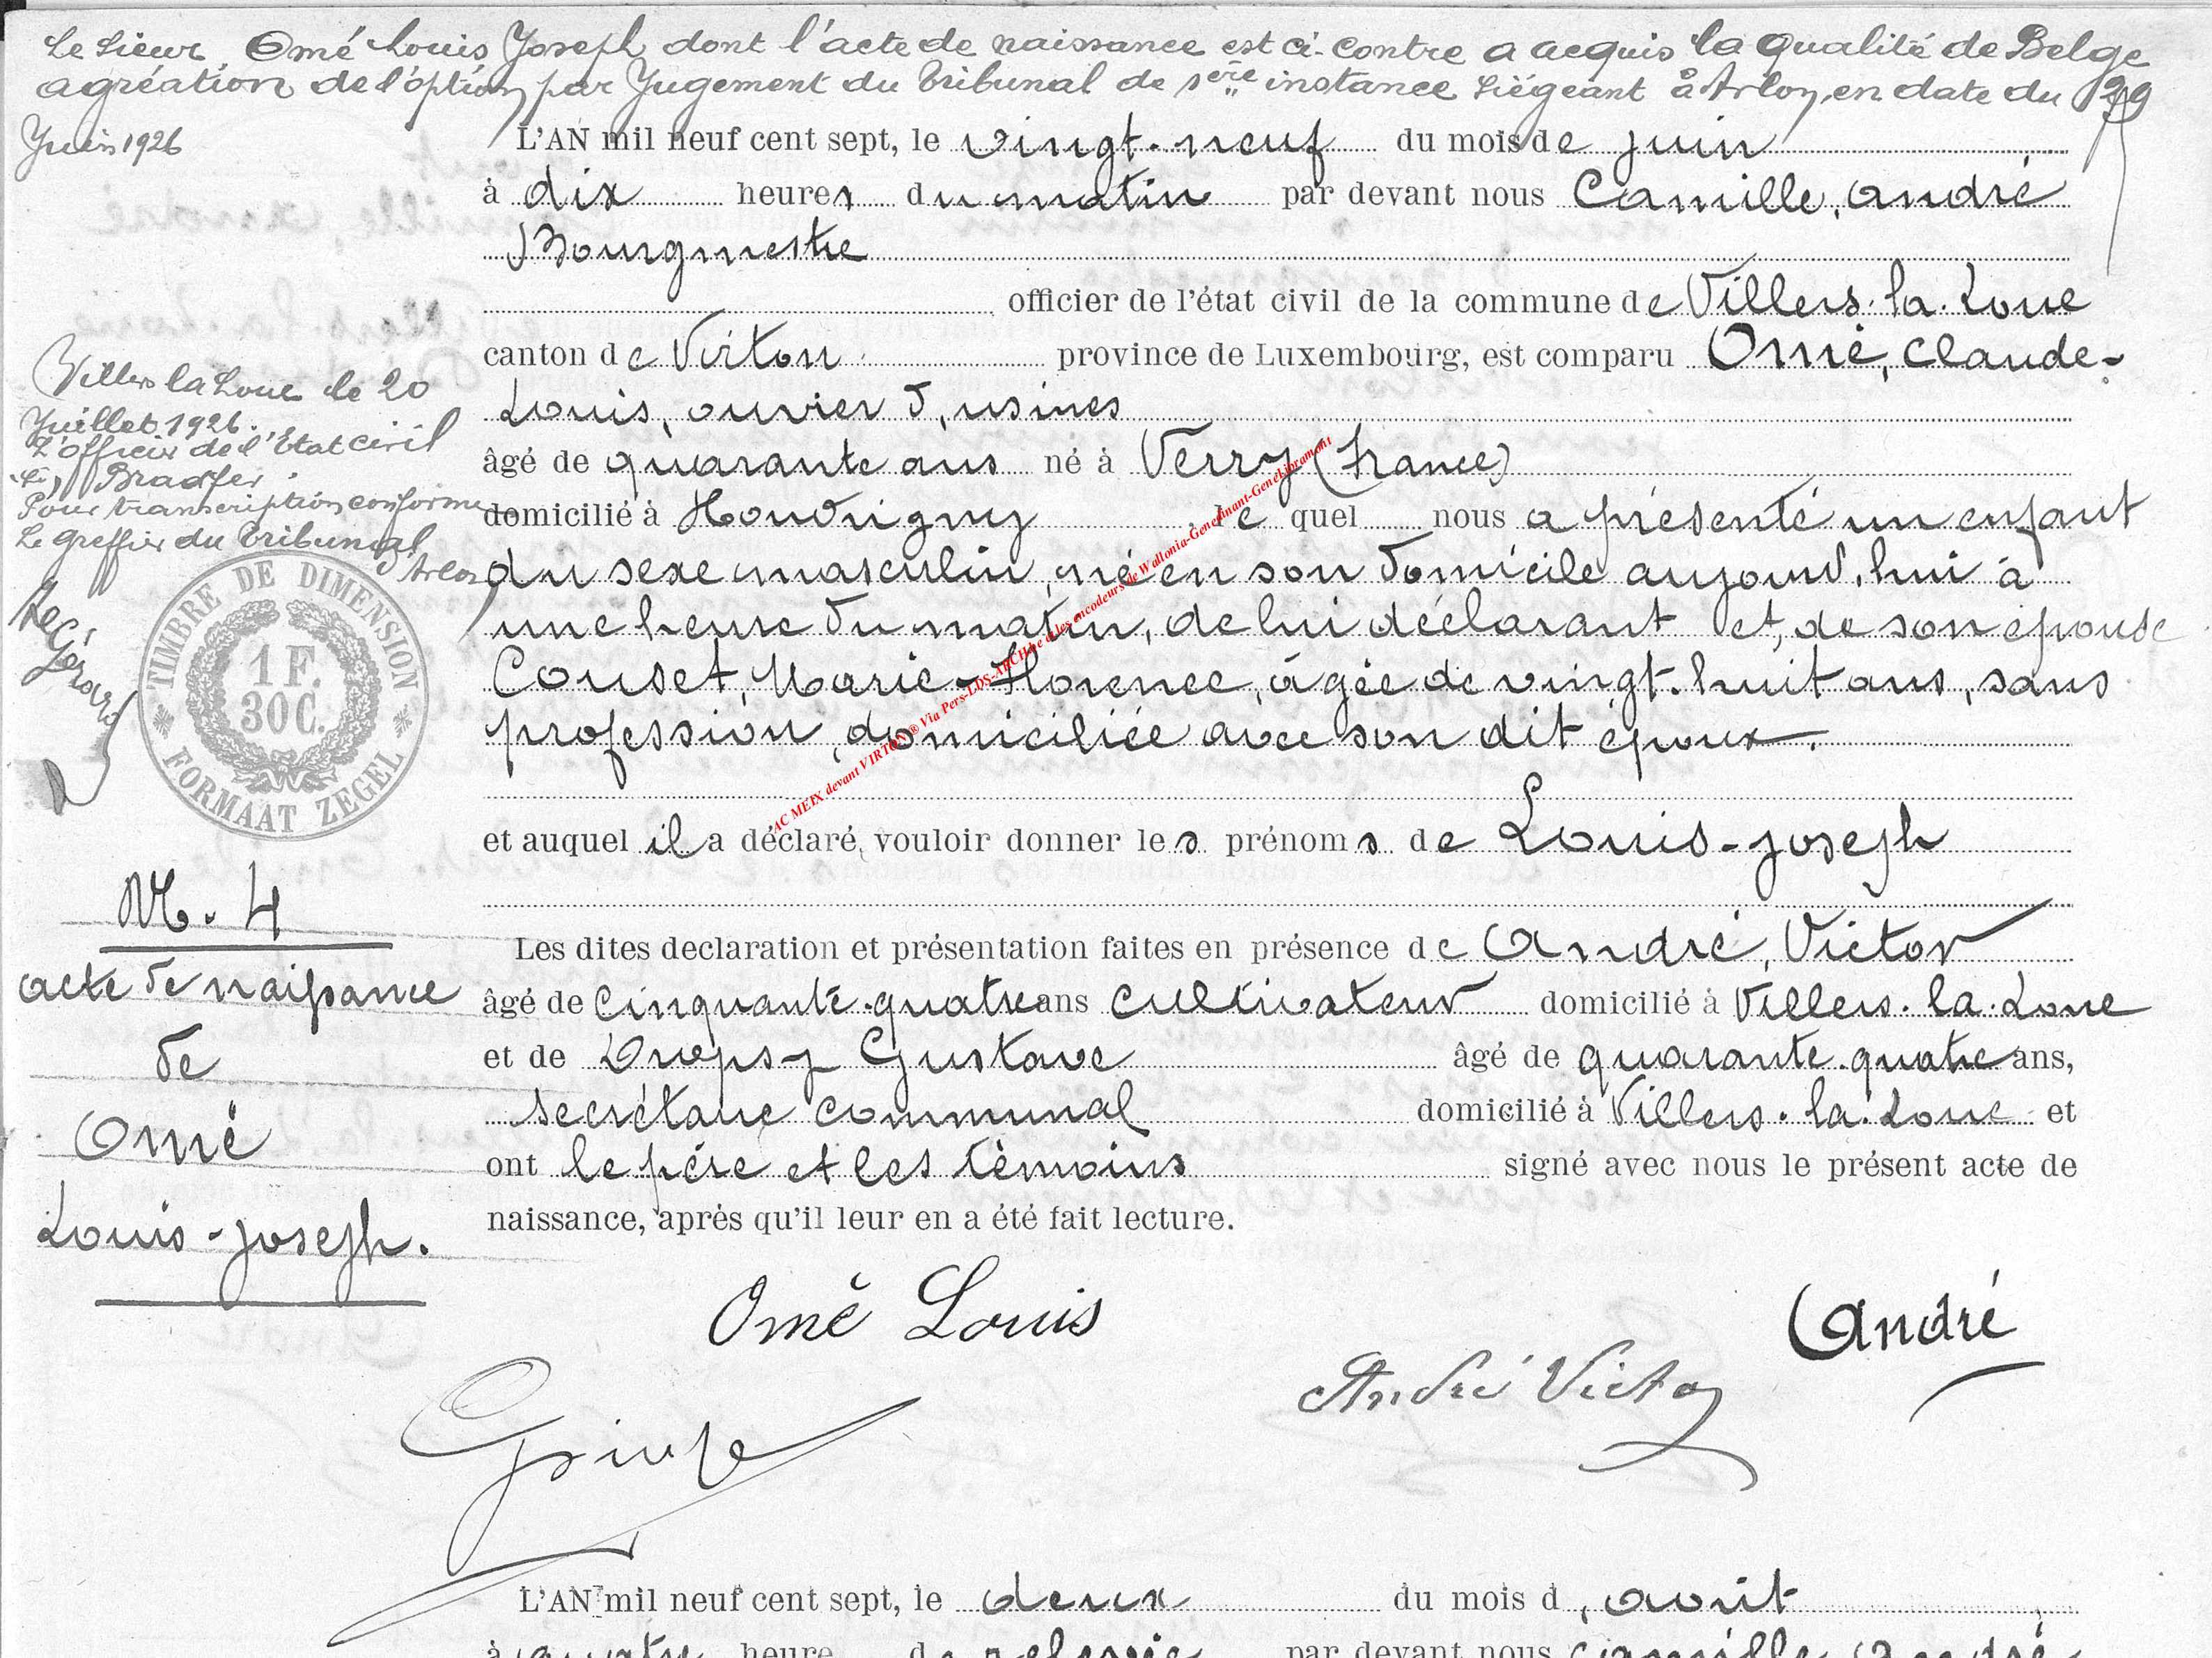 Le Sieur Omé Louis Joseph dont l'acte de naissance est ci-contre a acquis la qualité de Belge
agréation de l'option par Jugement du Tribunal de 1ère instance Siégeant à Arlon, en date du 29
Juin 1926
L'AN mil neuf cent sept, le vingt-neuf du mois de juin
à dix heures du matin par devant nous Camille, André
Bourgmestre
officier de l'état civil de la commune de Villers-la-Loue
canton de Virton province de Luxembourg, est comparu Omé, Claude-
Louis, ouvrier d'usines
âgé de quarante ans né à Verry (France)
domicilié à Houdrigny, le quel nous a présenté un enfant
du sexe masculin, né en son domicile aujourd'hui à
une heure du matin, de lui déclarant et, de son épouse
Couset, Marie-Florence, âgée de vingt-huit ans, sans
profession, domiciliée avec son dit époux.
et auquel il a déclaré vouloir donner les prénoms de Louis-joseph
Les dites declaration et présentation faites en présence de André, Victor
âgé de cinquante-quatre ans cultivateur domicilié à Villers-la-Loue
et de Dropsy Gustave âgé de quarante-quatre ans,
secrétaire communal domicilié à Villers-la-Loue et
ont le père et les témoins signé avec nous le présent acte de
naissance, après qu'il leur en a été fait lecture.
Villers la Loue le 20
Juillet 1926.
L'officier de l'Etat civil
(s) Bradfer
Pour transcription conforme
Le Greffier du Tribunal
Arlon
TIMBRE DE DIMENSION
1 F.
30 C.
FORMAAT ZEGEL
N. 4
acte de naissance
de
Omé
Louis-joseph.
AC MEIX devant VIRTON ® Via Pers-LDS-ARCH et les encodeurs de Wallonia-Genedinant-GeneLibramont
Omé Louis
André
André Victor
L'AN mil neuf cent sept, le deux du mois d'août
à quatre heure de relevée par devant nous Camille André